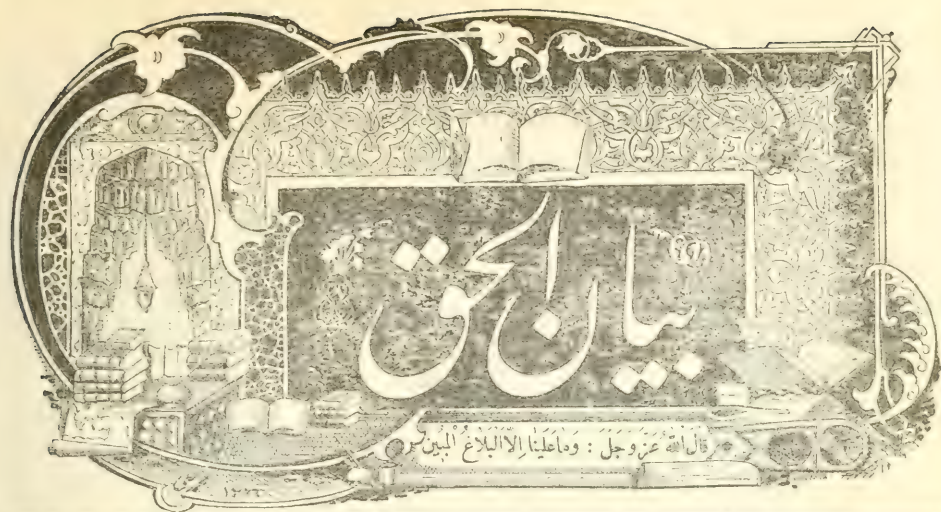 بيان الحق
قال الله عز وجل : وَمَا عَلَيْنَا إِلَّا الْبَلَاغُ الْمُبِينُ
١٣٢٦